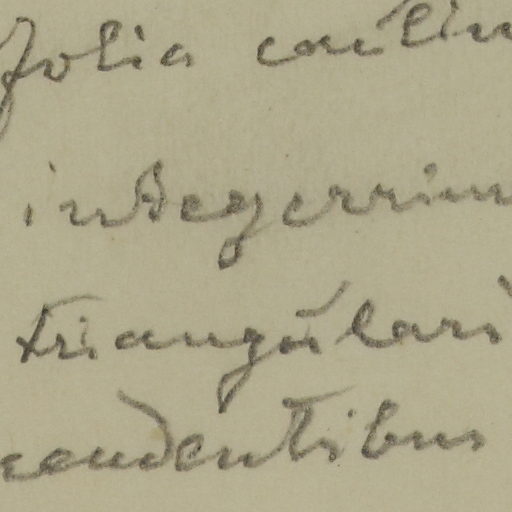 folia caulin
integerrim
triangulari
cendentibus